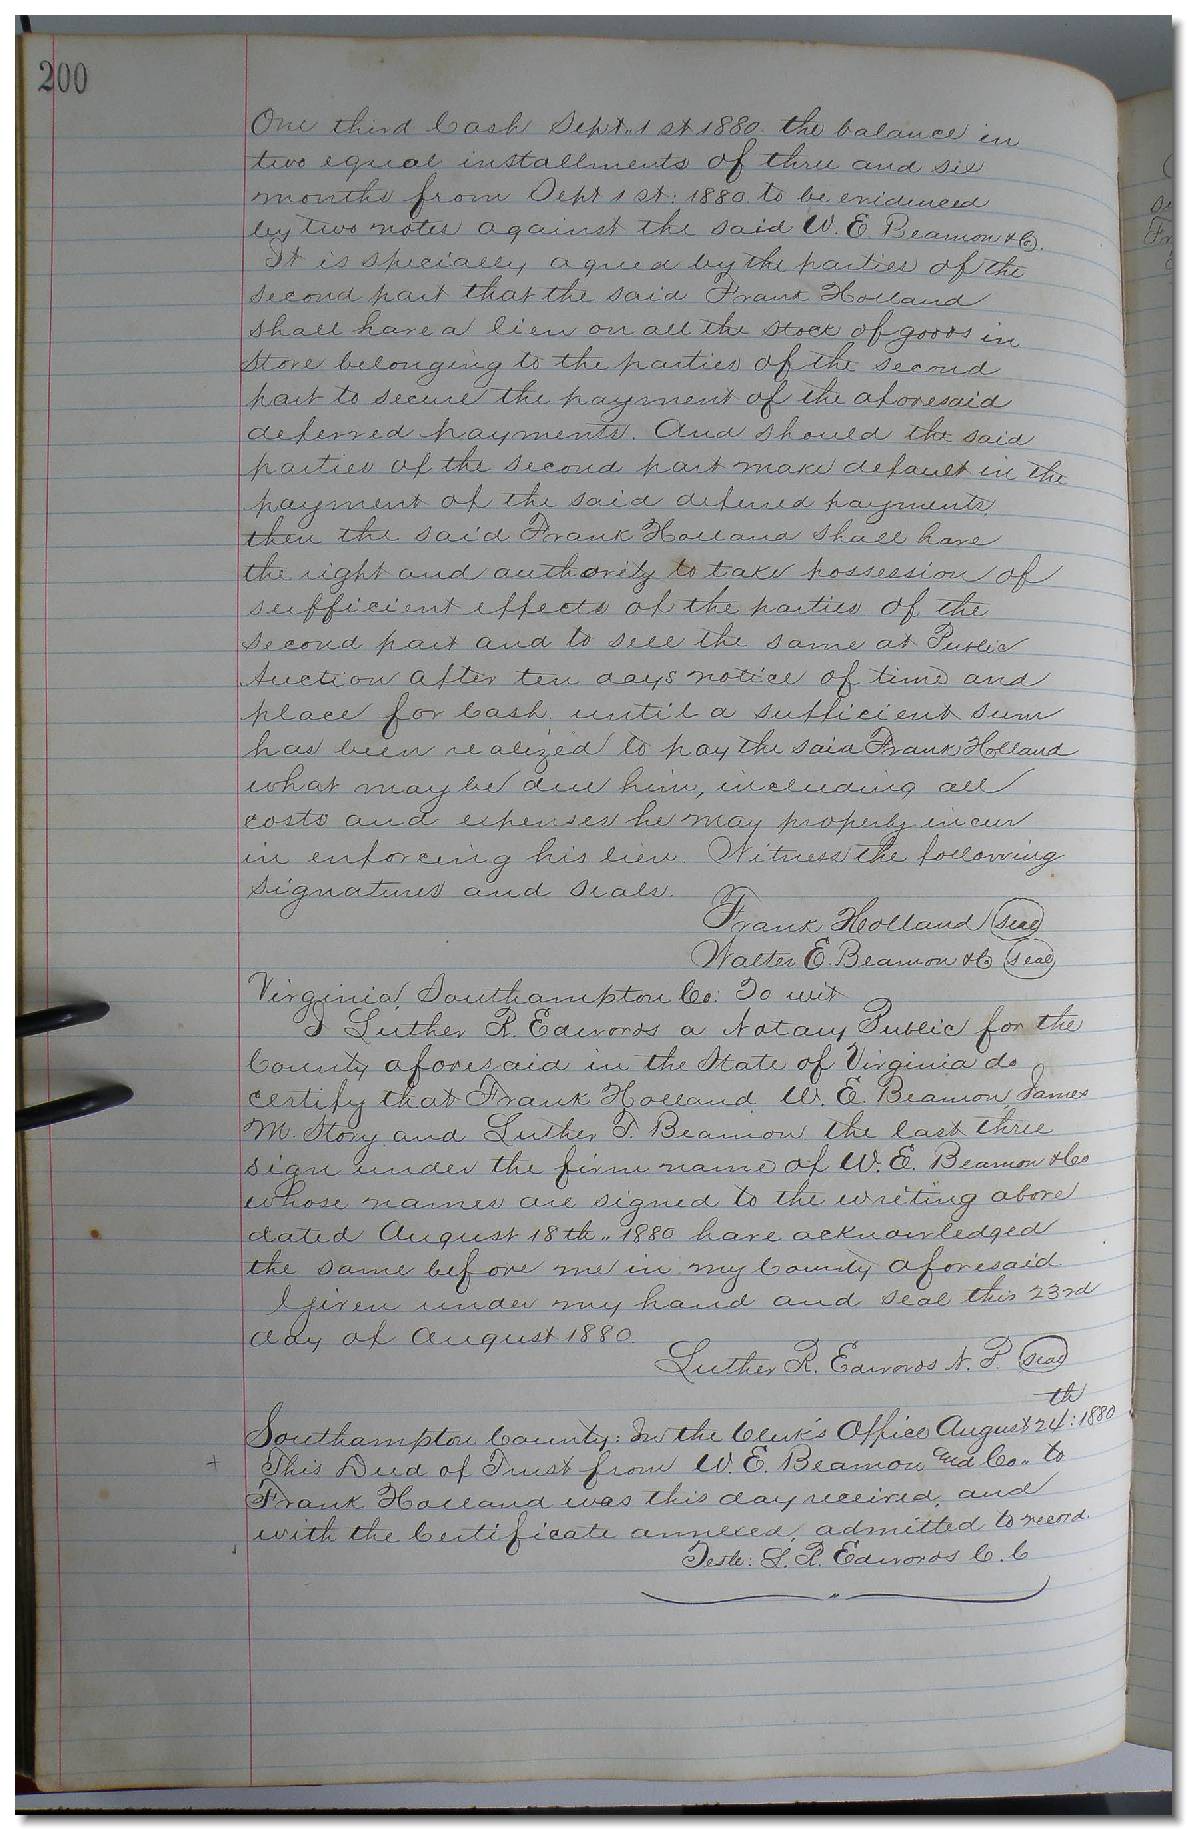 200
One third Cash Sept. 1st 1880. the balance in
two equal installments of three and six
months from Sept 1st: 1880 to be evidenced
by two notes against the said W. E. Beamon & Co.
It is specially agreed by the parties of the
second part that the said Frank Holland
shall have a lien on all the stock of goods in
store belonging to the parties of the second
part to secure the payment of the aforesaid
deferred payments. And should the said
parties of the second part make default in the
payment of the said deferred payments,
then the said Frank Holland shall have
the right and authority to take possession of
sufficient effects of the parties of the
second part and to sell the same at Public
Auction after ten days notice of time and
place for Cash until a sufficient sum
has been realized to pay the said Frank Holland
what may be due him, including all
costs and expenses he may properly incur
in enforcing his lien. Witness the following
signatures and seals.
Frank Holland (Seal)
Walter E. Beamon & Co (Seal)
Virginia, Southampton Co: To wit
I Luther R. Edwards a Notary Public for the
County aforesaid in the State of Virginia do
certify that Frank Holland, W. E. Beamon, James
M. Story and Luther T. Beamon the last three
sign under the firm name of W. E. Beamon & Co
whose names are signed to the writing above
dated August 18th, 1880 have acknowledged
the same before me in my County aforesaid
Given under my hand and seal this 23rd
day of August 1880.
Luther R. Edwards N. P. (Seal)
Southampton County: In the Clerk's Office August 24th: 1880
This Deed of Trust from W. E. Beamon and Co. to
Frank Holland was this day received, and
with the Certificate annexed, admitted to record.
Teste: L. R. Edwards C. C